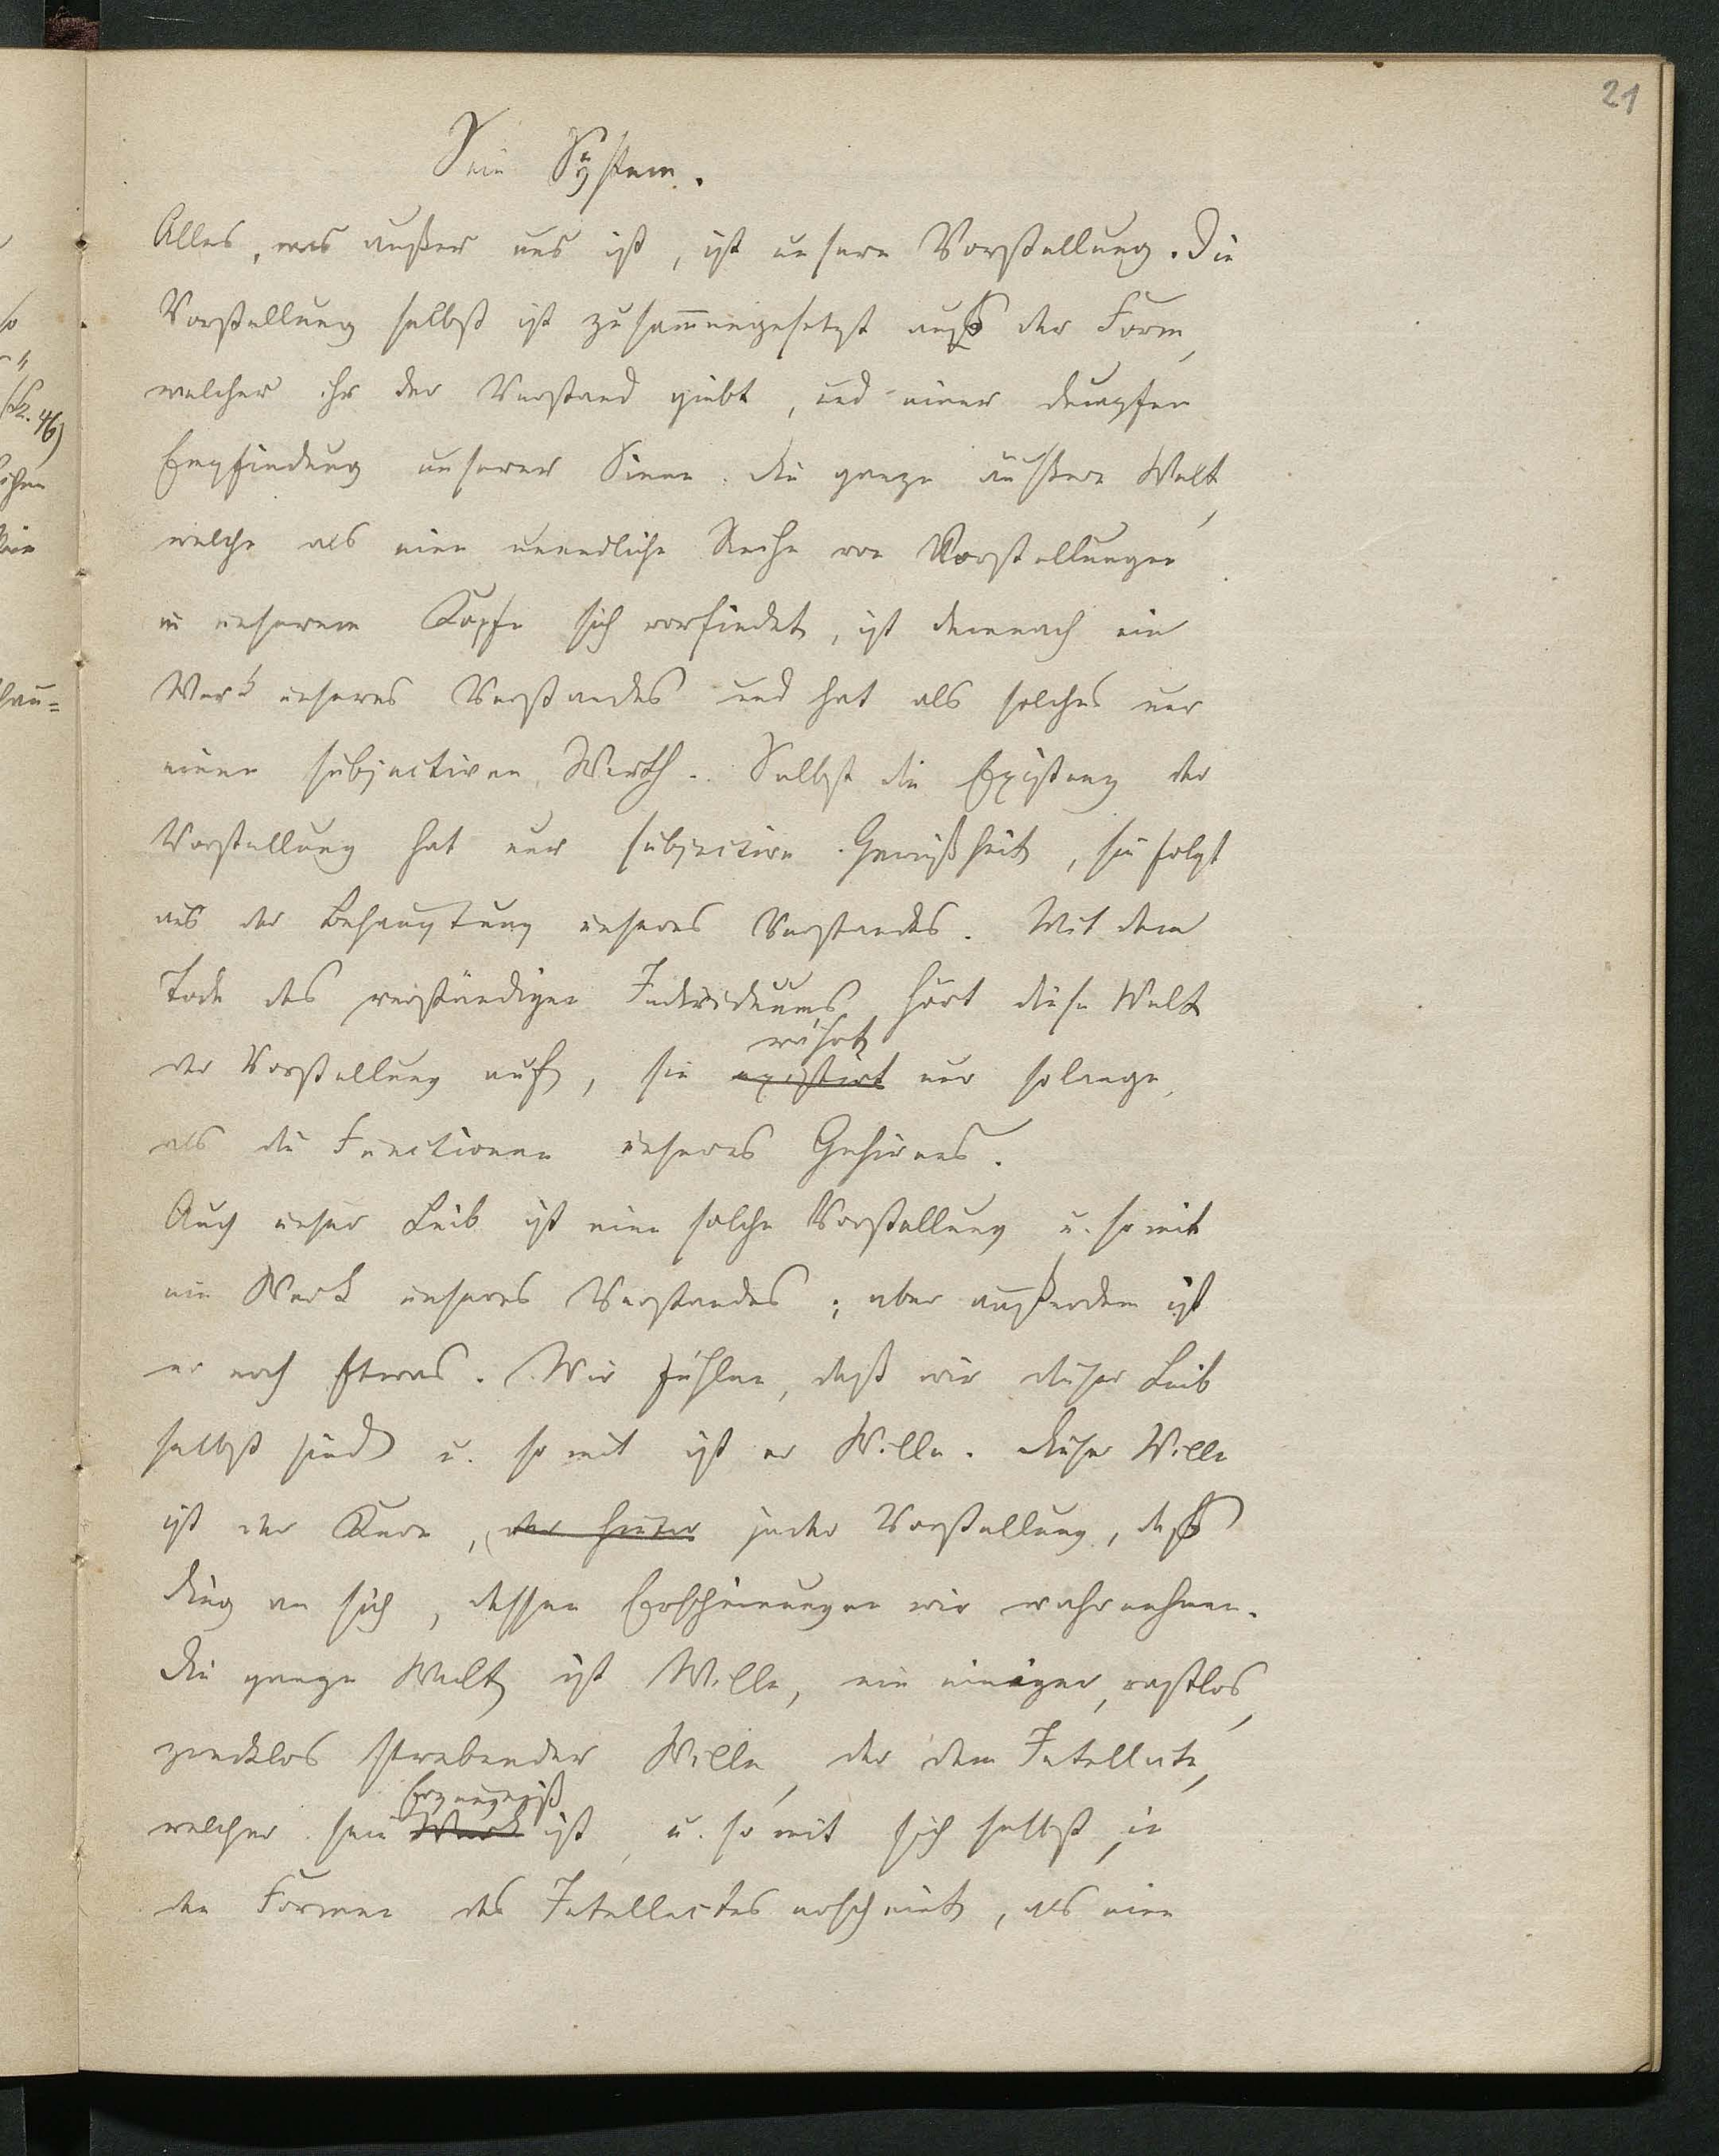 21
Sein System.
Alles, was außer uns ist, ist unsere Vorstellung. Die
Vorstellung selbst ist zusam̅engesetzt aus der Form,
welcher ihr der Verstand giebt, und einer dumpfen
Empfindung unserer Sinne. Die ganze äußere Welt,
welche als eine unendliche Reihe von Vorstellungen
in unserem Kopfe sich vorfindet, ist demnach ein
Werk unseres Verstandes und hat als solches nur
einen subjectiven Werth. Selbst die Existenz der
Vorstellung hat nur subjective Gewißheit, sie folgt
aus der Behauptung unseres Verstandes. Mit dem
Tode des verständigen Individuums hört diese Welt
währt
der Vorstellung auf, sie existirt nur solange,
als die Functionen unseres Gehirnes.
Auch unser Leib ist eine solche Vorstellung u. somit
ein Werk unseres Verstandes; aber außerdem ist
er noch Etwas. Wir fühlen, daß wir dieser Leib
selbst sind u. somit ist er Wille. Dieser Wille
ist der Kern, der hinter jeder Vorstellung, das
Ding an sich, dessen Erscheinungen wir wahrnehmen.
Die ganze Welt ist Wille, ein einiger, rastlos,
zwecklos strebender Wille, der dem Intellecte,
Erzeugniß
welcher sein Werk ist, u. somit sich selbst, in
den Formen des Intellectes erscheint, als eine
46)